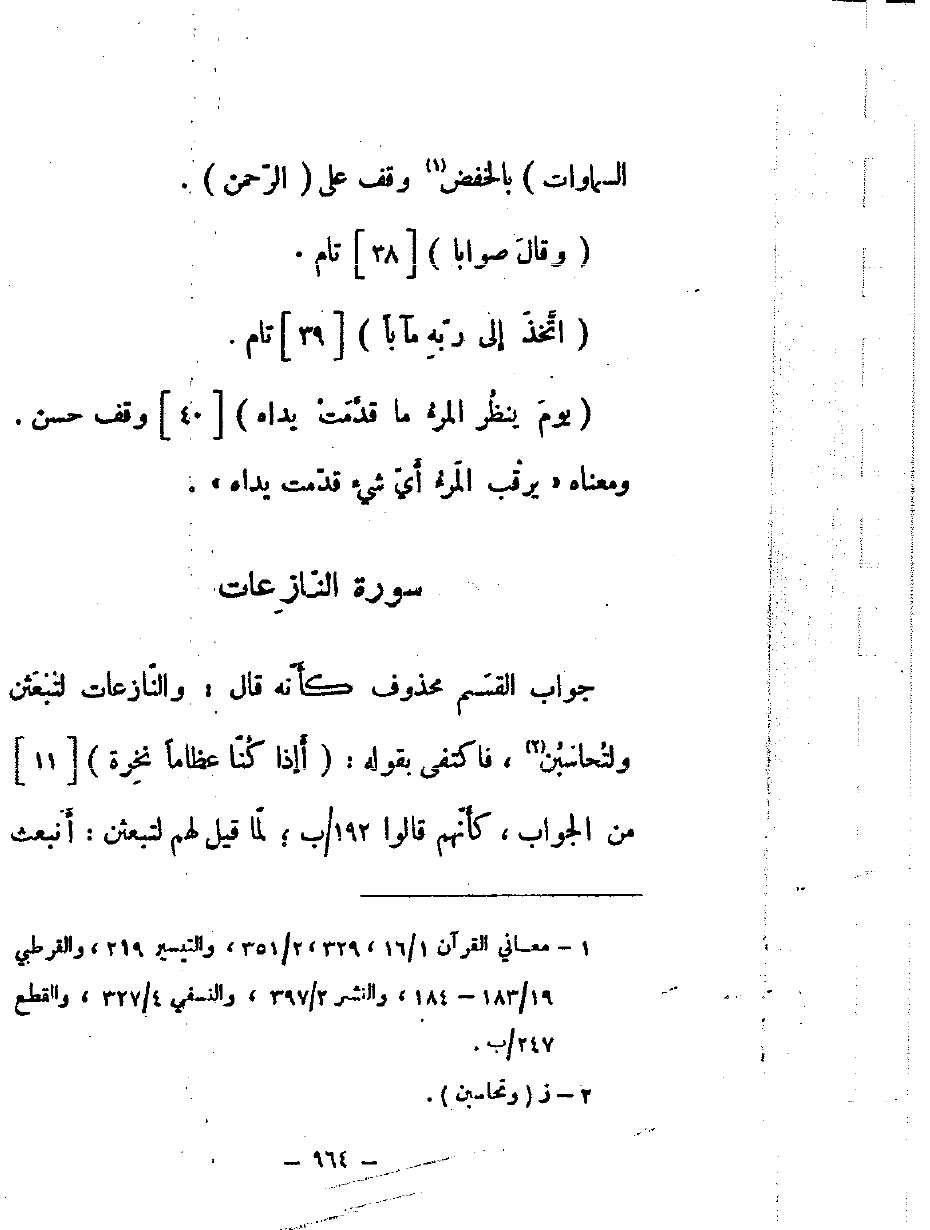 السماوات ) بالخفض(١) وقف على ( الرّحمن ) .
( وقالَ صوابا ) [ ٣٨ ] تام .
( اتَّخذَ إلى ربّهِ مآباً ) [ ٣٩ ] تام .
( يومَ ينظُر المرءُ ما قدَّمَتْ يداه ) [ ٤٠ ] وقف حسن .
ومعناه « يرقُب المَرءُ أَيّ شيء قدّمت يداه » .
سورة النّازِعات
جواب القسَم محذوف كأَنّه قال : والنّازعات لتُبْعَثن
ولتُحاسَبُن(٢) ، فاكتفى بقوله : ( أَإذا كُنّا عظاماً نخِرة ) [ ١١ ]
من الجواب ، كأنّهم قالوا ١٩٢/ب ؛ لمّا قيل لهم لتبعثن : أَنبعث
١ – معاني القرآن ١٦/١ ، ٣٢٩ ، ٣٥١/٢ ، والتيسير ٢١٩ ، والقرطبي
١٨٣/١٩ – ١٨٤ ، والنشر ٣٩٧/٢ ، والنسفي ٣٢٧/٤ ، والقطع
٢٤٧/ب .
٢ – ز ( وتحاسبن ) .
– ٩٦٤ –